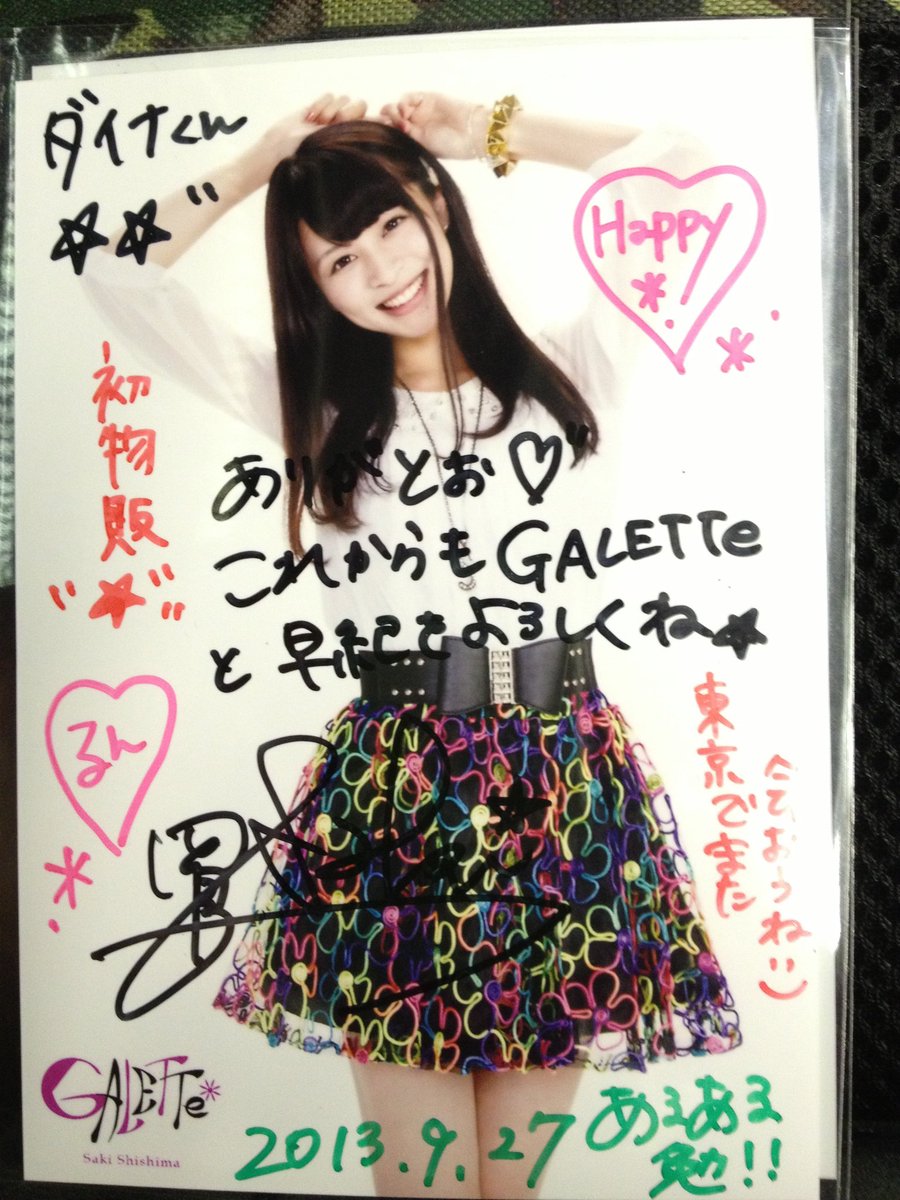 ダイナくん
☆☆"
Happy
初物販
"★"
ありがとお♡"
これからもGALETTe
と早紀をよろしくね★
るん
東京でまた
あおうね
GALETTe*
Saki Shishima
2013.9.27
あるある
勉!!